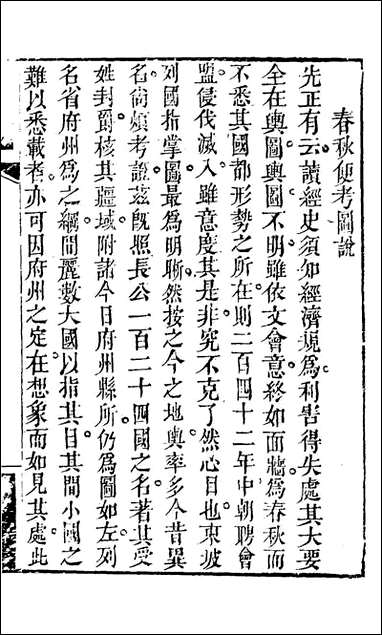 春秋便考圖說
先正有云讀經史須知經濟規爲利害得失處其大要
全在輿圖輿圖不明雖依文會意終如面牆爲春秋而
不悉其國都形勢之所在則二百四十二年中朝聘會
盟侵伐滅入雖意度其是非究不克了然心目也東坡
列國指掌圖最爲明晰然按之今之地輿率多今昔異
名尙煩考證茲旣照長公一百二十四國之名著其受
姓封爵核其疆域附諸今日府州縣所仍爲圖如左列
名省府州爲之綱間麗數大國以指其目其間小國之
難以悉載者亦可因府州之定在想象而如見其處此